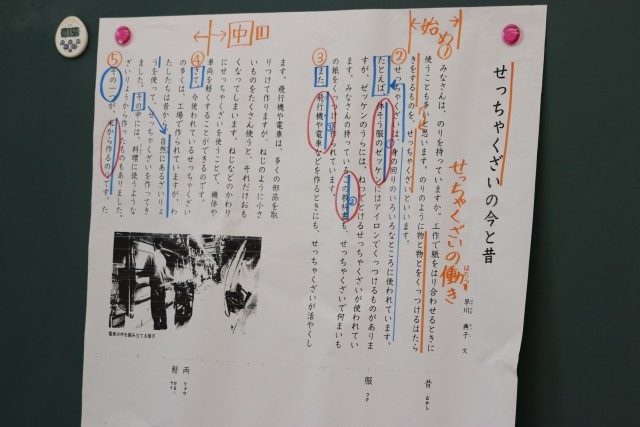 せっちゃくざいの今と昔
早川 典子 文
始め
①みなさんは、のりを持っていますか。工作で紙をはり合わせるときに
使うことも多いと思います。のりのように物と物とをくっつけるはたら
きをするものを、せっちゃくざいといいます。
せっちゃくざいの働き
はたら
②せっちゃくざいは、身の回りのいろいろなところに使われています。
たとえば、体そう服のゼッケンにはアイロンでくっつけるものがありま
すが、ゼッケンのうらには、ねつでとけるせっちゃくざいが使われてい
ます。みなさんの持っている教科書も、せっちゃくざいで何まいも
の紙をくっつけて作られています。
③また、飛行機や電車などを作るときにも、せっちゃくざいが活やくし
ます。飛行機や電車は、多くの部品を取
りつけて作りますが、ねじのように小さ
いものをたくさん使うと、それだけおも
くなってしまいます。ねじなどのかわり
にせっちゃくざいを使うことで、機体や
車両を軽くすることができるのです。
中
④さて、今使われているせっちゃくざい
の多くは、工場で作られていますが、わ
たしたちは昔から、自然にあるざいりょ
うを使って、せっちゃくざいを作ってき
ました。その中には、料理に使うような
ざいりょうから作ったものもありました。
⑤その一つが、米から作るのりです。た
電車の中を組み立てる様子
昔 むかし
服 フク
両 リョウ
軽 ケイ かるい